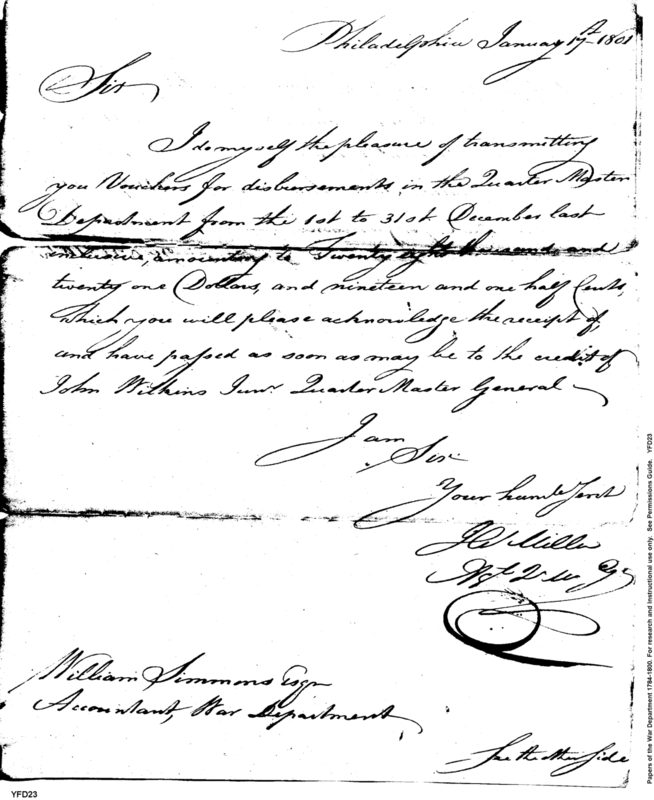 Philadelphia January 17th 1801
Sir
I do myself the pleasure of transmitting
you Vouchers for disbursements in the Quarter Master
Department from the 1st to 31st December last
inclusive, amounting to Twenty eight thousand and
twenty one Dollars, and nineteen and one half Cents,
which you will please acknowledge the receipt of,
and have passed as soon as may be to the credit of
John Wilkins Junr. Quarter Master General
I am
Sir
Your humle Servt
Miller
William Simmons Esqr
Accountant, War Department
See the other Side
YFD23
Papers of the War Department 1784-1800. For research and instructional use only. See Permissions Guide. YFD23